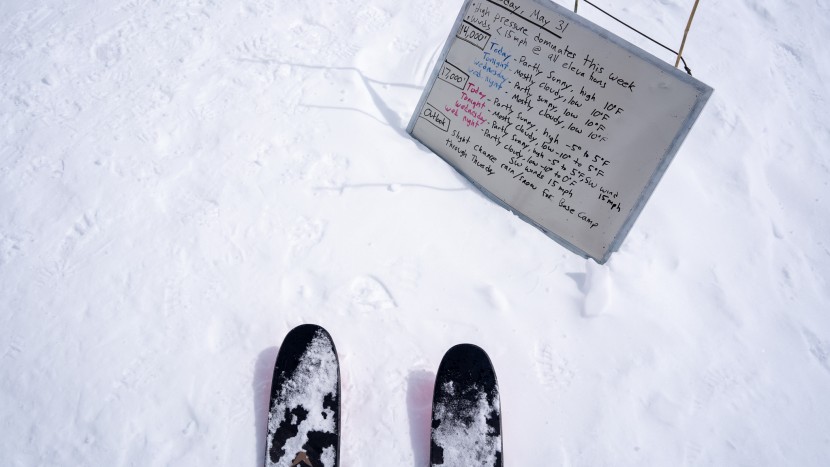 day, May 31
• High pressure dominates this week
• Winds < 15 mph @ all elevations
14,000'
Today - Partly Sunny, high 10°F
Tonight - Mostly cloudy, low 10°F
Wednesday - Partly sunny, low 10°F
Wed night - Mostly cloudy, low 10°F
17,000'
Today - Partly Sunny, high -5° to 5°F
Tonight - Mostly cloudy, low -10° to 5°F
Wednesday - Partly Sunny, high -5° to 5°F, SW wind 15 mph
Wed night - Partly cloudy, low -10° to 0°F SW winds 15 mph
Outlook
Slight chance rain/snow for Base Camp
through Thursday